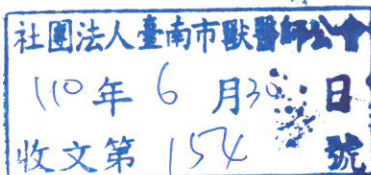 社團法人臺南市獸醫師公會
110年6月30日
收文第154號